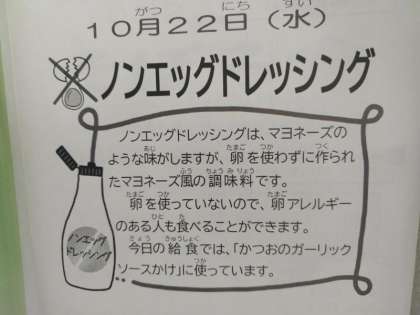 １０月２２日（水）
ノンエッグドレッシング
ノンエッグドレッシングは、マヨネーズの
ような味がしますが、卵を使わずに作られ
たマヨネーズ風の調味料です。
卵を使っていないので、卵アレルギー
のある人も食べることができます。
今日の給食では、「かつおのガーリック
ソースかけ」に使っています。
ノンエッグ
ドレッシング